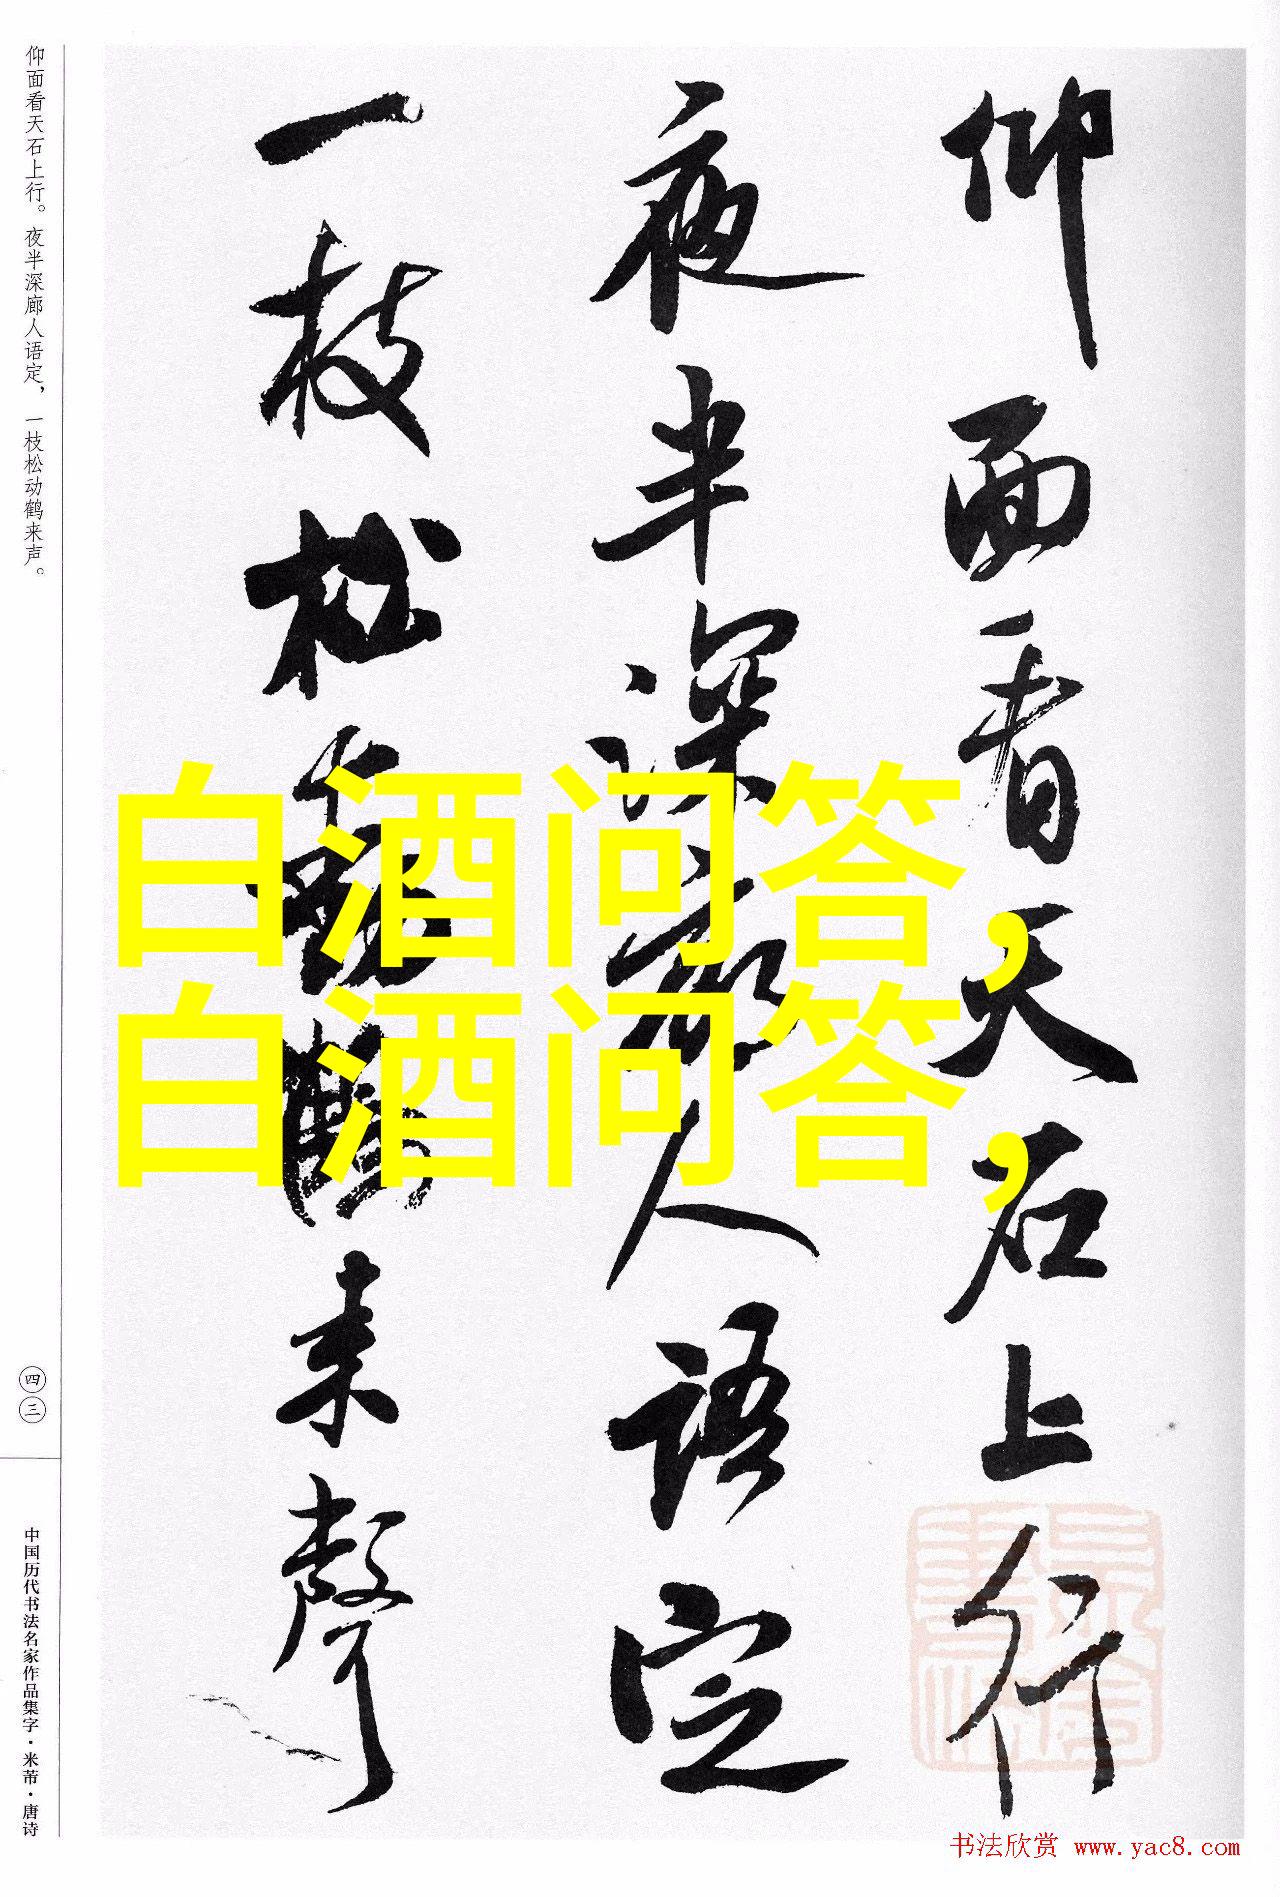 仰面看天石上行
夜半深廊人语定
一枝松動鶴来聲
仰面看天石上行。夜半深廊人语定，一枝松动鹤来声。
四三
中国历代书法名家作品集字·米芾·唐诗
白酒问答，
白酒问答，
书法欣赏 www.yac8.com